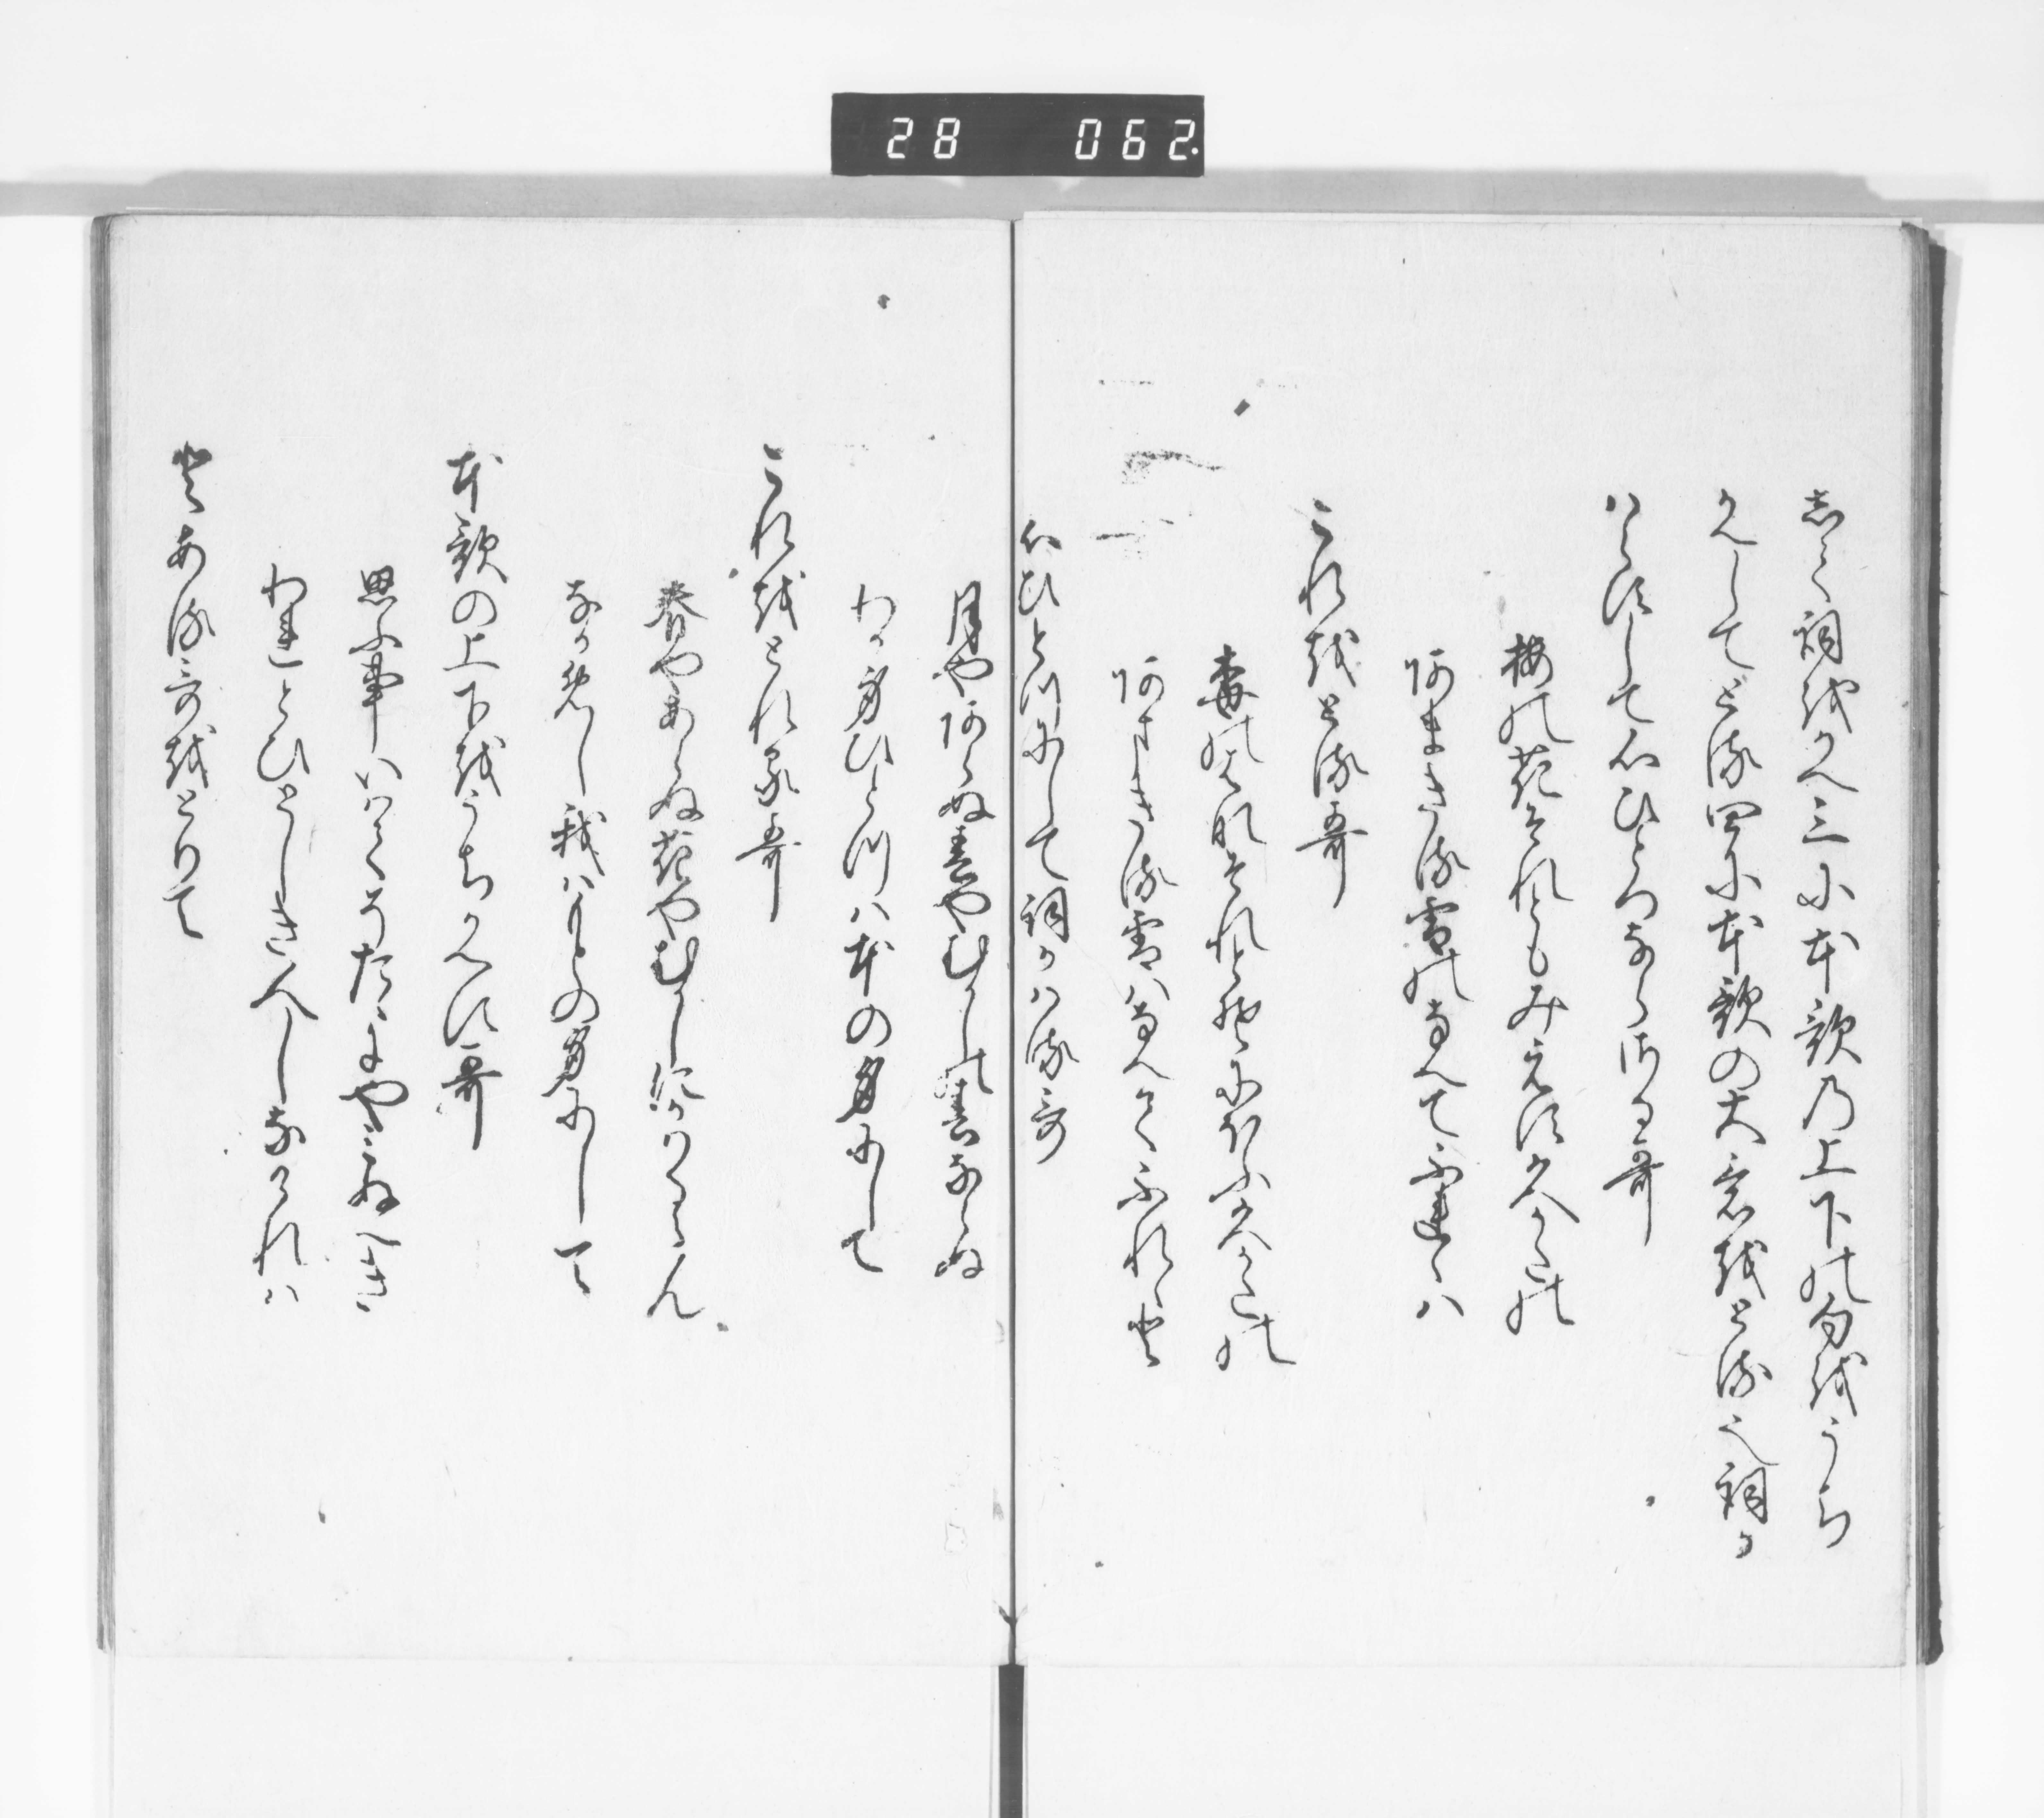 28 062
志て詞越かへ三に本歌乃上下の句越うち
かへして とる四に本歌の大意越とる也詞か
はらすして心ひとつならさる哥
梅の花それともみえす久かたの
阿まきる雪のなへてふれゝは
これ越とる哥
春風はそれともにほふ久かたの
阿まきる雪はなへてふれと
心ひとつにして詞かはる哥
月や阿らぬ春やむかしの春ならぬ
わか身ひとつはもとの身にして
これ越とれる哥
春やあらぬ花やむかしにかはるらん
なかめし我はもとの身にして
本歌の上下越うちかへす哥
思ふ事いはてそたゝにやみぬへき
われとひとしき人しなけれは
とある哥越とりて